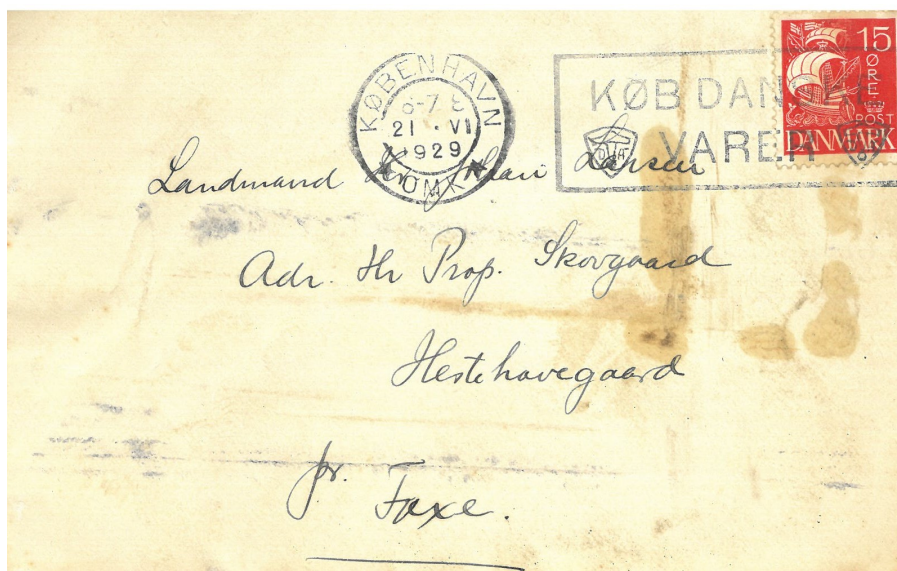 KØBENHAVN
21 · VI
1929
OMK
KØB DANSKE
VARER
15
ØRE
POST
DANMARK
Landmand Hr Larsen
Adr. Hr Prop. Skovgaard
Hestehavegaard
pr. Faxe.